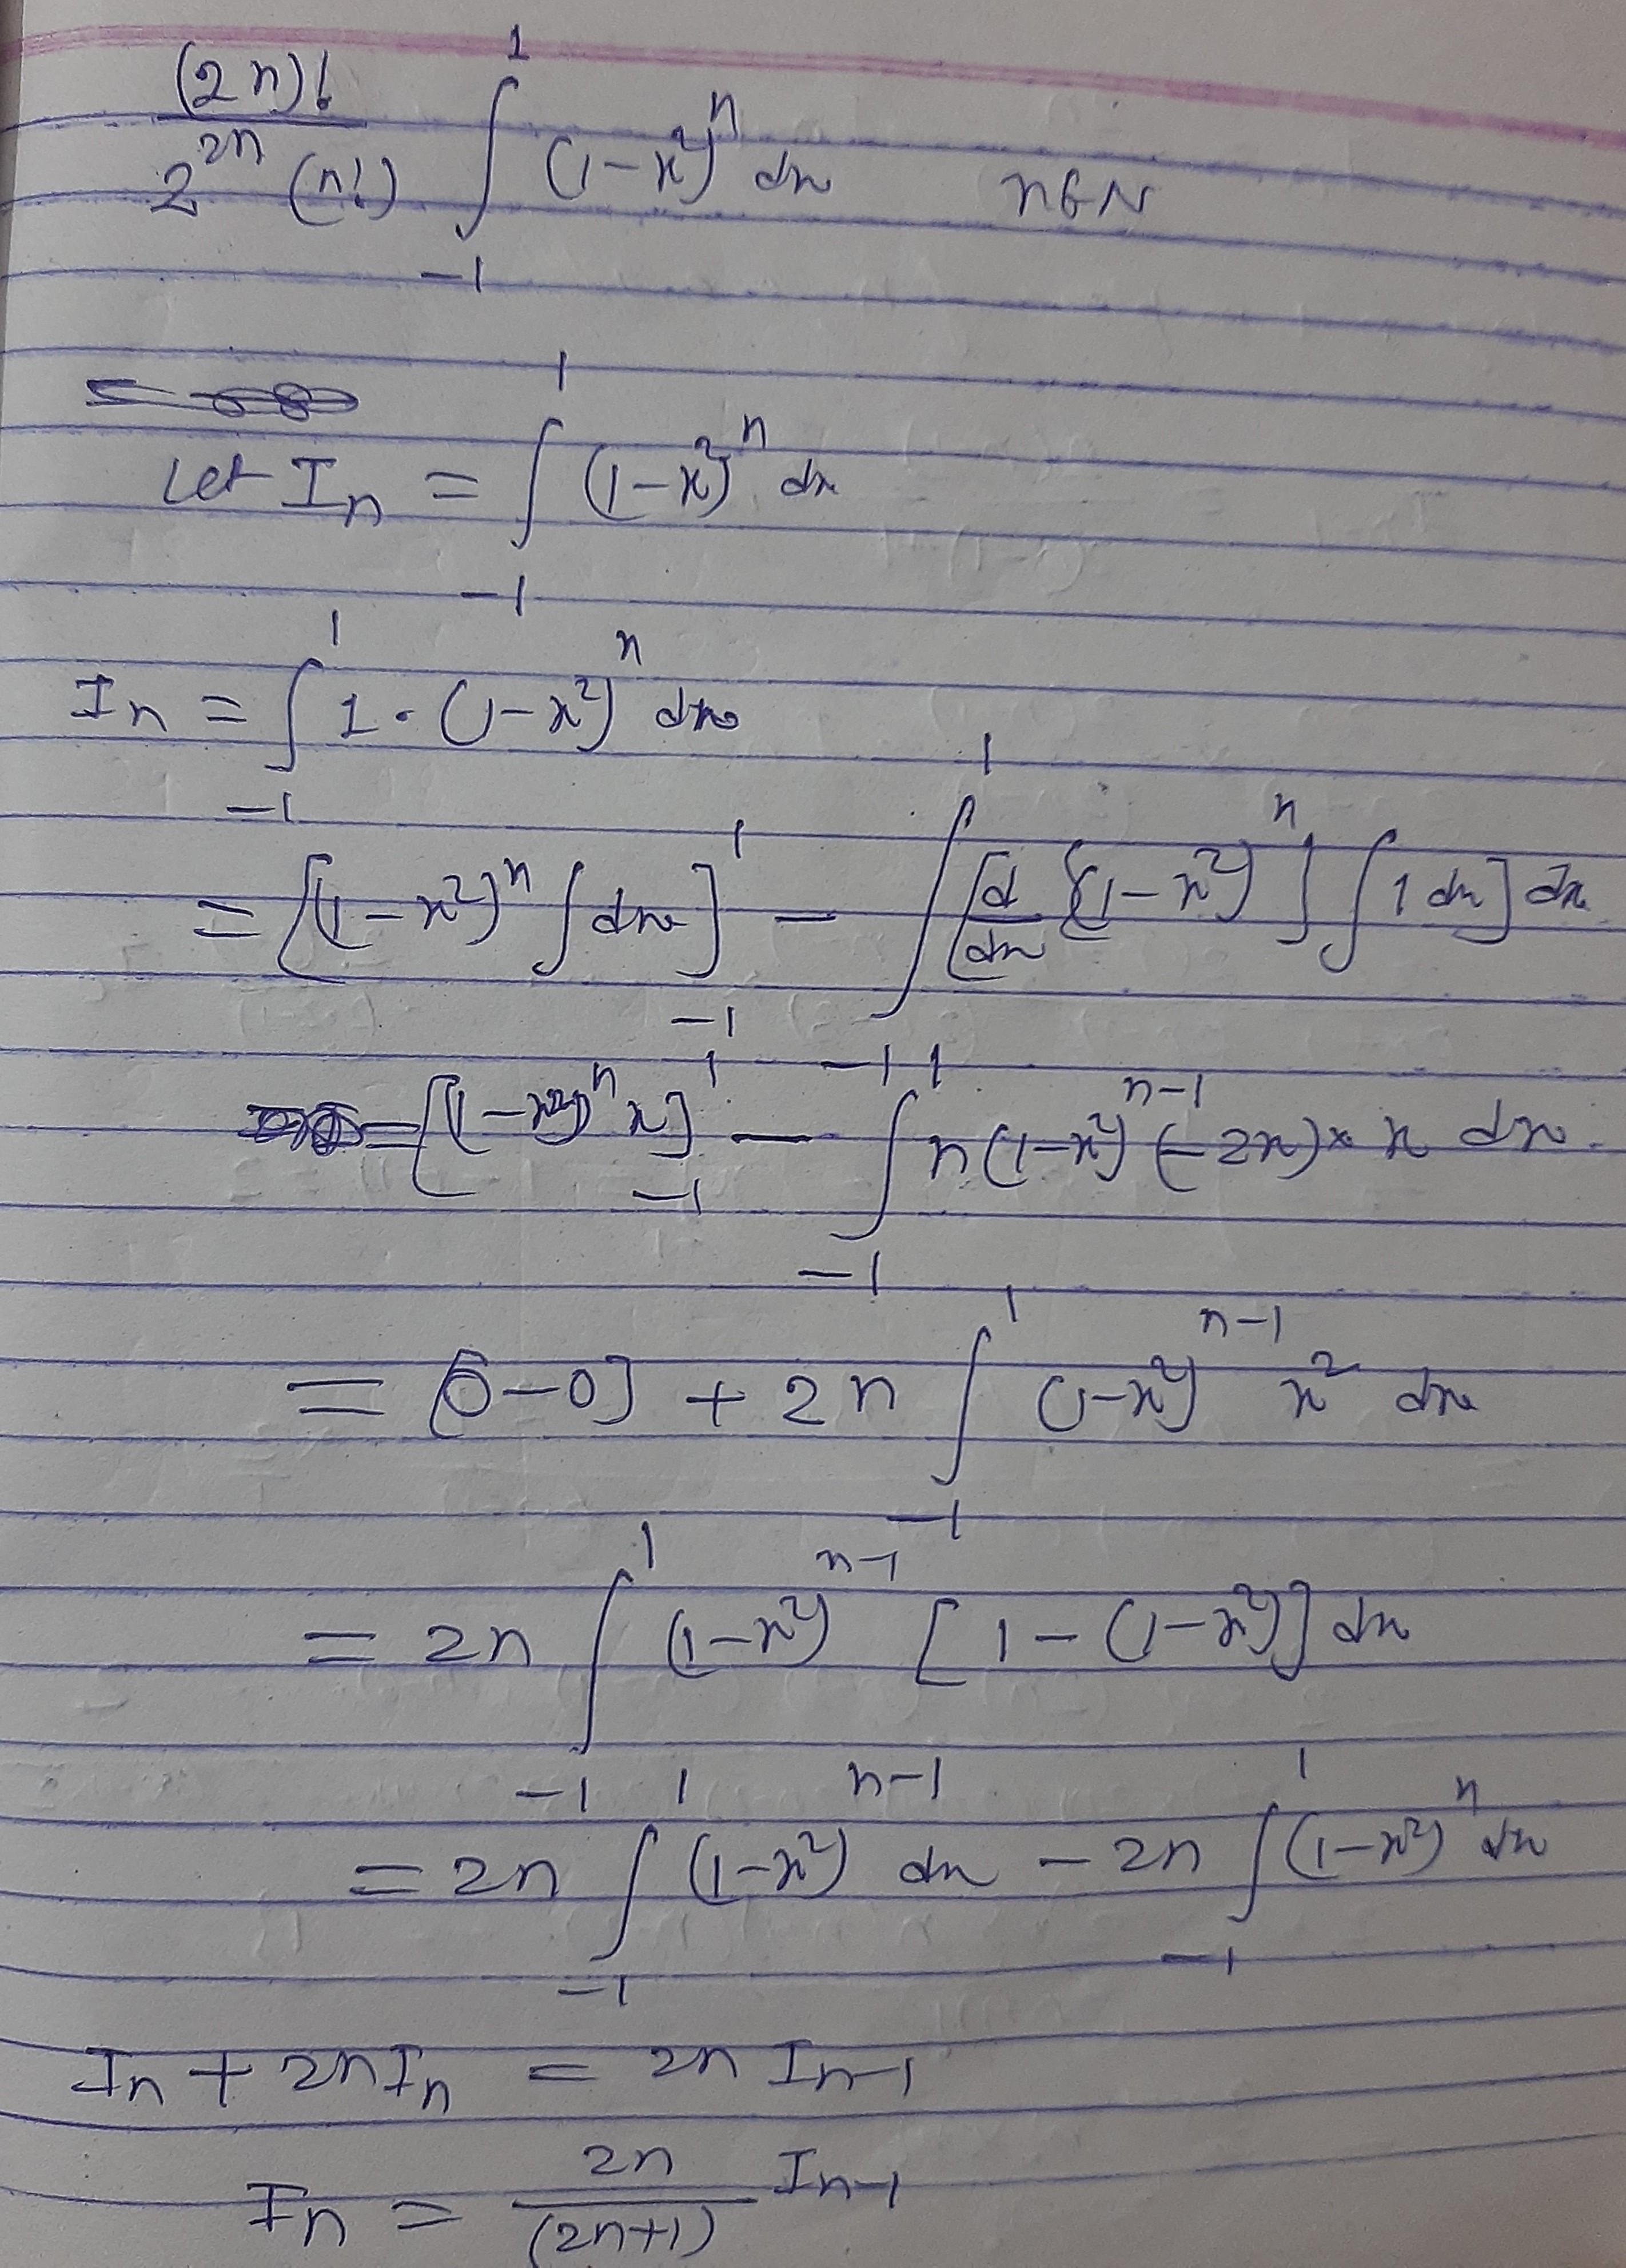 (2n)! / 2^{2n} (n!) ∫_{-1}^{1} (1-x²)^n dx n∈N
Let I_n = ∫_{-1}^{1} (1-x²)^n dx
I_n = ∫_{-1}^{1} 1·(1-x²)^n dx
= [(1-x²)^n ∫dx]_{-1}^{1} - ∫_{-1}^{1} [d/dx {(1-x²)^n} ∫1dx] dx
= [(1-x²)^n x]_{-1}^{1} - ∫_{-1}^{1} n(1-x²)^{n-1} (-2x)×x dx
= [0-0] + 2n ∫_{-1}^{1} (1-x²)^{n-1} x² dx
= 2n ∫_{-1}^{1} (1-x²)^{n-1} [1-(1-x²)] dx
= 2n ∫_{-1}^{1} (1-x²)^{n-1} dx - 2n ∫_{-1}^{1} (1-x²)^n dx
I_n + 2nI_n = 2n I_{n-1}
I_n = 2n / (2n+1) I_{n-1}